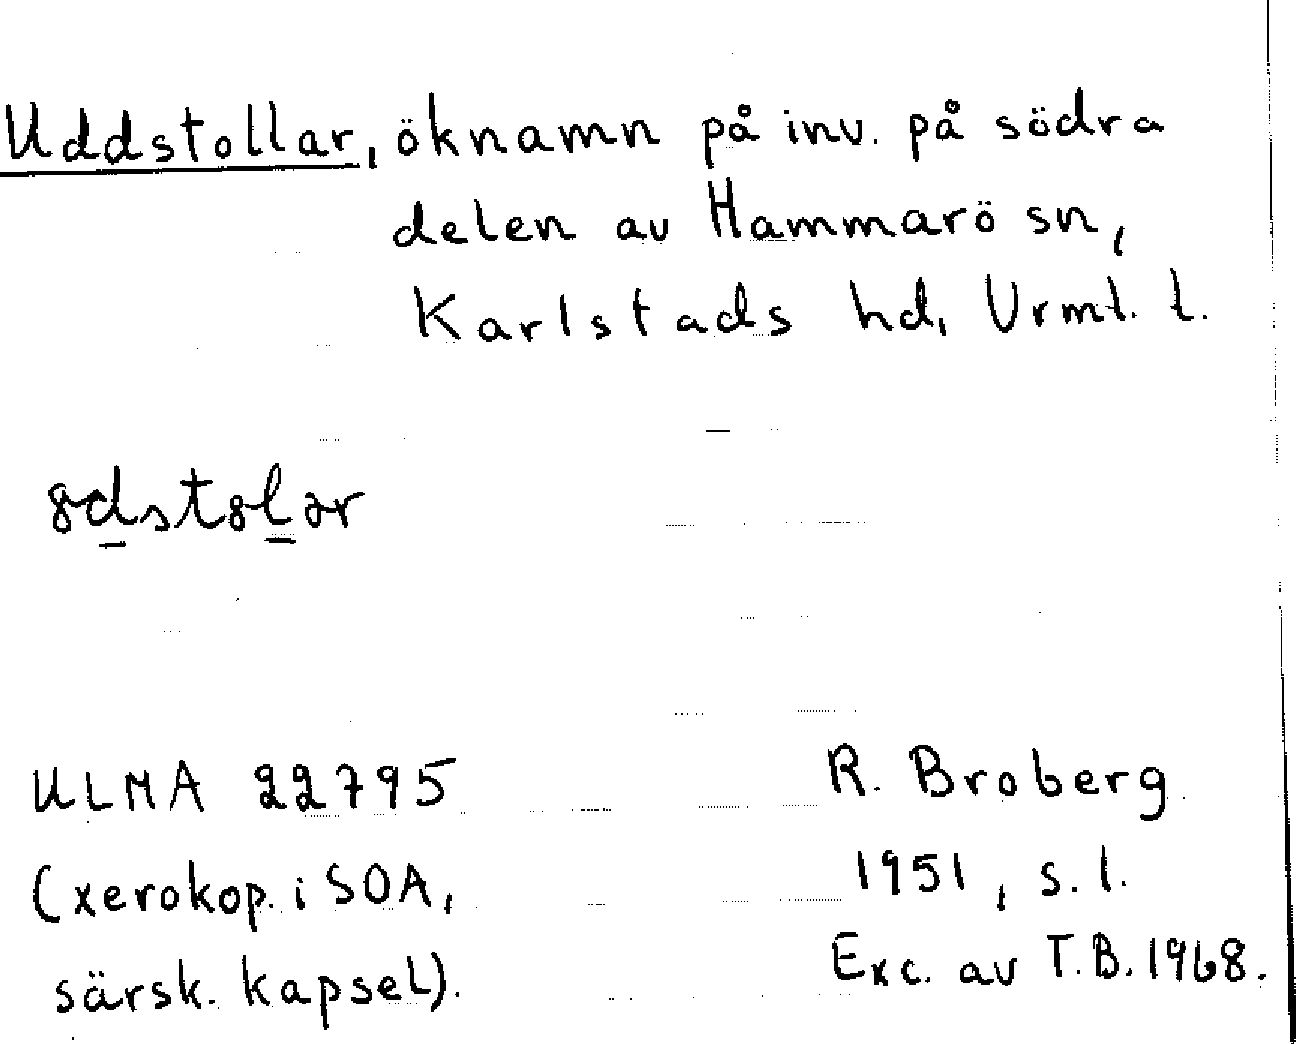 Uddstollar, öknamn på inv. på södra
delen av Hammarö sn,
Karlstads hd, Vrml. l.
ULMA 22795
(xerokop. i SOA,
särsk. kapsel).
R. Broberg
1951, s. 1.
Exc. av T.B. 1968.